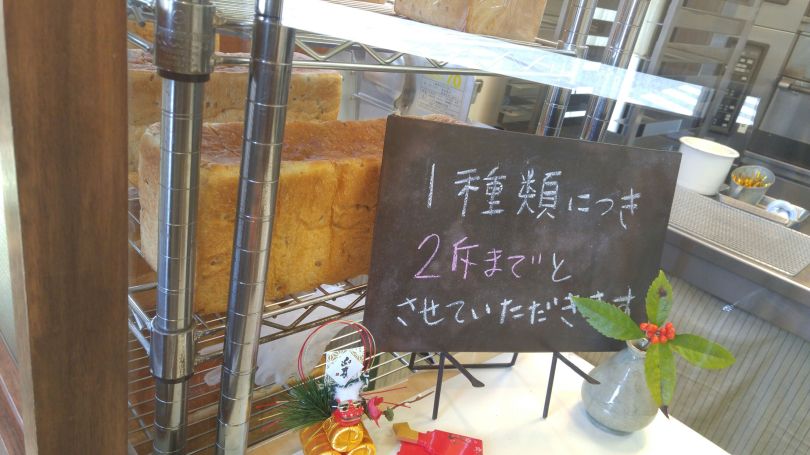 1種類につき
2斤までと
させていただきます